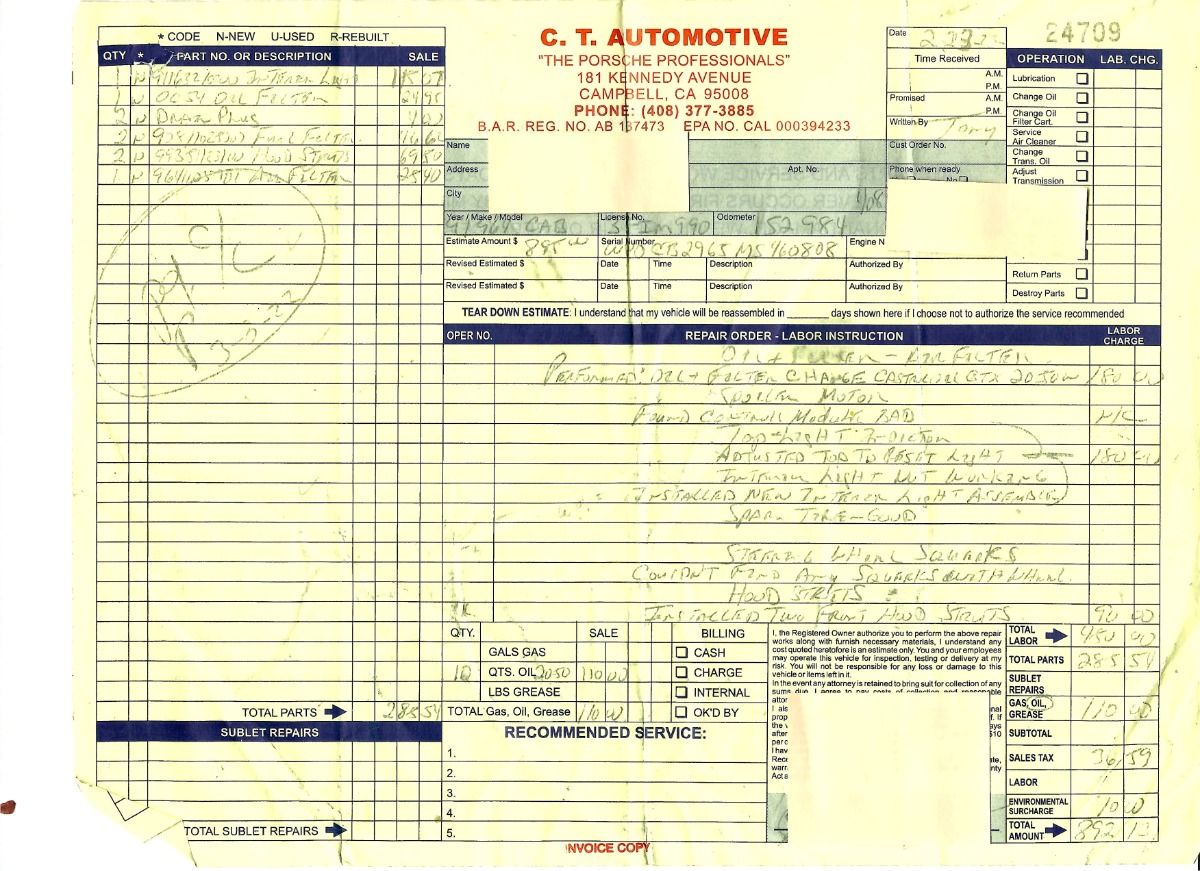 * CODE N-NEW U-USED R-REBUILT
QTY * PART NO. OR DESCRIPTION SALE
1 N
1 N OC54 OIL FILTER 24 95
2 N DRAIN PLUG 4 00
2 N FUEL FILTER 46 62
2 N HOOD STRUTS 69 50
1 N AIR FILTER 25 40
Pd. C/C
TOTAL PARTS 285 54
SUBLET REPAIRS
TOTAL SUBLET REPAIRS
C. T. AUTOMOTIVE
"THE PORSCHE PROFESSIONALS"
181 KENNEDY AVENUE
CAMPBELL, CA 95008
PHONE: (408) 377-3885
B.A.R. REG. NO. AB 137473 EPA NO. CAL 000394233
Date
24709
Time Received
A.M.
P.M.
Promised A.M.
P.M.
Written By Tony
Name
Cust Order No.
Address Apt. No. Phone when ready
City
Year / Make / Model 91 964 CAB License No. Odometer 152984
Estimate Amount $ 895 00 Serial Number WP0CB2965MS460808 Engine N
Revised Estimated $ Date Time Description Authorized By
Revised Estimated $ Date Time Description Authorized By
OPERATION LAB. CHG.
Lubrication
Change Oil
Change Oil
Filter Cart.
Service
Air Cleaner
Change
Trans. Oil
Adjust
Transmission
Return Parts
Destroy Parts
TEAR DOWN ESTIMATE: I understand that my vehicle will be reassembled in ________ days shown here if I choose not to authorize the service recommended
OPER NO. REPAIR ORDER - LABOR INSTRUCTION LABOR CHARGE
OIL + FILTER - AIR FILTER
PERFORMED OIL + FILTER CHANGE CASTROL GTX 2050W 180 00
SPOILER MOTOR
FOUND CONTROL MODULE BAD N/C
TOP LIGHT
ADJUSTED TOP TO RESET LIGHT 180 00
LIGHT NOT WORKING
INSTALLED NEW LIGHT
SPARE TIRE - GOOD
SQUEAKS
COULDN'T FIND ANY SQUEAKS WITH WHEEL
HOOD STRUTS
INSTALLED TWO FRONT HOOD STRUTS 90 00
QTY. SALE
GALS GAS
10 QTS. OIL 2050 110 00
LBS GREASE
TOTAL Gas, Oil, Grease 110 00
BILLING
CASH
CHARGE
INTERNAL
OK'D BY
I, the Registered Owner authorize you to perform the above repair
works along with furnish necessary materials, I understand any
cost quoted heretofore is an estimate only. You and your employees
may operate this vehicle for inspection, testing or delivery at my
risk. You will not be responsible for loss or damage to this
vehicle or items left in it.
In the event any attorney is retained to bring suit for collection of any
sums due, I agree to pay costs of collection and reasonable
TOTAL LABOR 450 00
TOTAL PARTS 285 54
SUBLET REPAIRS
GAS, OIL, GREASE 110 00
SUBTOTAL
SALES TAX 36 59
LABOR
ENVIRONMENTAL SURCHARGE 10 00
TOTAL AMOUNT 892 13
RECOMMENDED SERVICE:
1.
2.
3.
4.
5.
INVOICE COPY